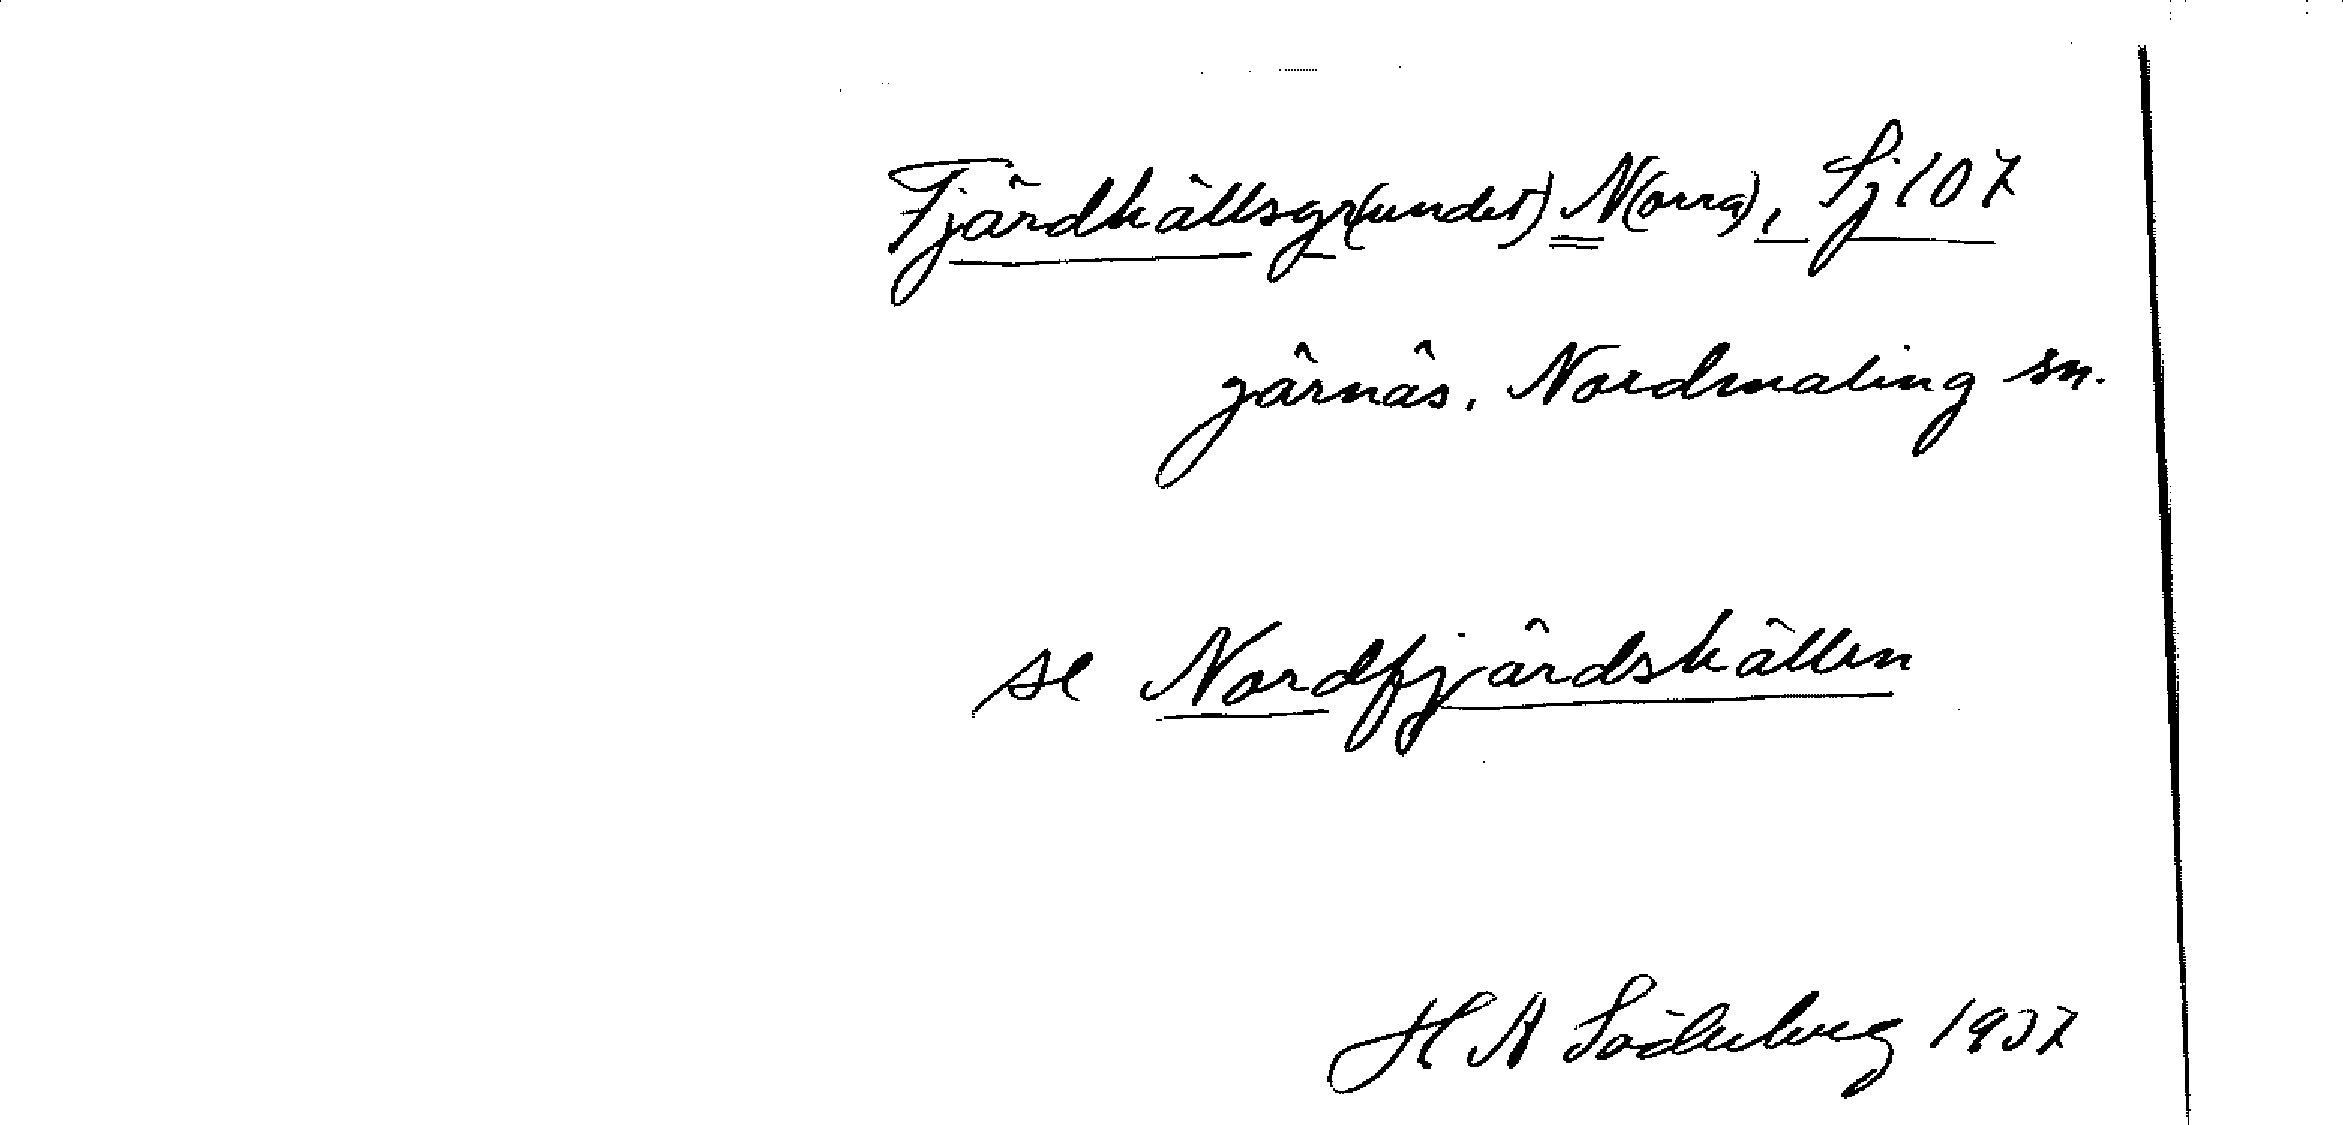 Fjärdhällsgr(undet) N(orra), Sj 107
Järnäs. Nordmaling sn.
se Nordfjärdshällen
H A Söderberg 1937